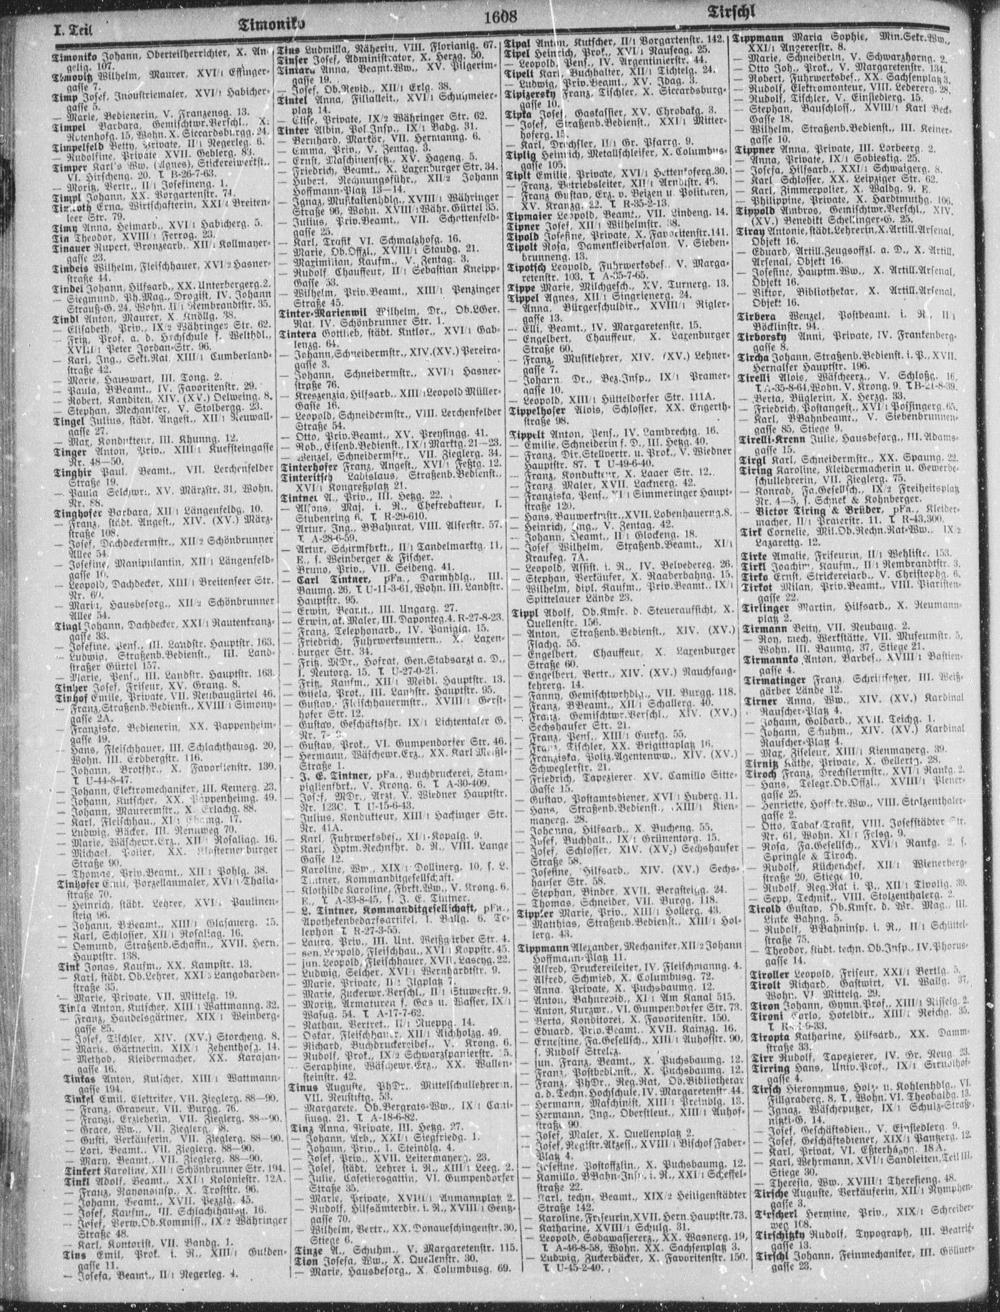 I. Teil
Timoniko
1608
Tirschl
Timoniko Johann, Oberteilherrichter, X. An-
gelig. 107.
Timovitz Wilhelm, Maurer, XVI/1 Effinger-
gasse 7.
Timp Josef, Industriemaler, XVI/1 Habicher-
gasse 5.
— Marie, Bedienerin, V. Franzensg. 13.
Timpel Barbara, Gemischtw.Verschl., X.
Rotenhofg. 15, Wohn. X. Siccardsburgg. 24.
Timpelfeld Betty, Private, II/1 Negerleg. 6.
— Rudolfine, Private XVII. Geblerg. 83.
Timper Karl's Ww. (Agnes), Stickereiwerkst.,
VI. Hirscheng. 20. T B-26-7-63.
— Moritz, Vertr., II/1 Josefineng. 1.
Timpl Johann, XX. Vorgartenstr. 74.
Erna, Wirtschafterin, XXI/1 Breiten-
leer Str. 79.
Timy Anna, Heimarb., XVI/1 Habicherg. 5.
Tin Theodor, XVIII/1 Ferrog. 23.
Tinauer Rupert, Bronzearb., XII/1 Kollmayer-
gasse 23.
Tindeis Wilhelm, Fleischhauer, XVI/2 Hasner-
straße 44.
Tindel Johann, Hilfsarb., XX. Unterbergerg. 2.
— Siegmund, Ph.Mag., Drogist, IV. Johann
Strauß-G. 24, Wohn. II/1 Rembrandtstr. 35.
Tindl Anton, Maurer, X. Knöllg. 38.
— Elisabeth, Priv., IX/2 Währinger Str. 62.
— Fritz, Prof. a. d. Hochschule f. Welthdl.,
XVIII/1 Peter Jordan-Str. 96.
— Karl, Ing., Sekt.Rat, XIII/1 Cumberland-
straße 42.
— Marie, Hauswart, III. Tong. 2.
— Paula, BBeamt., IV. Favoritenstr. 29.
— Robert, Kanditen, XIV. (XV.) Oelweing. 8.
— Stephan, Mechaniker, V. Stolbergg. 23.
Tingel Julius, städt. Angest., XII/1 Rauchwall-
gasse 27.
— Max, Kondukteur, III. Khunng. 12.
Tinger Anton, Priv., XIII/1 Kuefsteingasse
Nr. 48—50.
Tinghir Paul, Beamt., VII. Lerchenfelder
Straße 19.
— Paula, Selchwr., XV. Märzstr. 31, Wohn.
Nr. 88.
Tinghofer Barbara, XII/1 Längenfeldg. 10.
— Franz, städt. Angest., XIV. (XV.) März-
straße 108.
— Josef, Dachdeckermstr., XII/2 Schönbrunner
Allee 54.
— Josefine, Manipulantin, XII/1 Längenfeld-
gasse 10.
— Leopold, Dachdecker, XIII/1 Breitenseer Str.
Nr. 60.
— Maria, Hausbesorg., XII/2 Schönbrunner
Allee 54.
Tingl Johann, Dachdecker, XXI/1 Rautenkranz-
gasse 33.
— Josefine, Pens., III. Landstr. Hauptstr. 163.
— Ludwig, Straßenb.Bedienst., III. Land-
straßer Gürtel 157.
— Marie, Pens., III. Landstr. Hauptstr. 163.
Tinher Josef, Friseur, XV. Grang. 8.
Tinhof Emilie, Private, VII. Neubaugürtel 46.
— Franz, Straßenb.Bedienst., XVIII/1 Simony-
gasse 2A.
— Franziska, Bedienerin, XX. Pappenheim-
gasse 49.
— Hans, Fleischhauer, III. Schlachthausg. 20,
Wohn. III. Erdbergstr. 116.
— Johann, Brothdlr., X. Favoritenstr. 130.
T U-44-8-47.
— Johann, Elektromechaniker, III. Keinerg. 23.
— Johann, Kutscher, XX. Pappenheimg. 49.
— Johann, Maurermstr., X. Erlachg. 88.
— Karl, Fleischhau., XI/1 Ehamg. 17.
— Ludwig, Bäcker, III. Rennweg 70.
— Marie, Wäschewr.Erz., XII/1 Rosaliag. 16.
— Michael, Polier, XX. Klosterneuburger
Straße 90.
— Thomas, Priv.Beamt., XII/1 Pohlg. 38.
Tinhofer Emil, Porzellanmaler, XVI/1 Thalia-
straße 70.
— Heinrich, städt. Lehrer, XVI/1 Paulinen-
steig 96.
— Johann, BBeamt., XIII/1 Glasauerg. 15.
— Karl, Schlosser, XII/1 Rosaliag. 16.
— Osmund, Straßenb.Schaffn., XVII. Hern.
Hauptstr. 138.
Tink Jonas, Kaufm., XX. Kampfstr. 13.
— Karl, städt. Ob.Lehrer, XXI/1 Langobarden-
straße 35.
— Marie, Private, VII. Mittelg. 19.
Tinka Anton, Kutscher, XIII/1 Wattmanng. 32.
— Franz, Handelsgärtner, XIX/1 Weinberg-
gasse 85.
— Josef, Tischler, XIV. (XV.) Storcheng. 8.
— Marie, Gärtnerin, XIX/1 Zehenthofg. 14.
— Method, Kleidermacher, XX. Karajan-
gasse 16.
Tinkas Anton, Kutscher, XIII/1 Wattmann-
gasse 194.
Tinkel Emil, Elektriker, VII. Zieglerg. 88—90.
— Franz, Graveur, VII. Burgg. 76.
— Franzi, Erzieherin, VII. Zieglerg. 88—90.
— Grace, Ww., VII. Zieglerg. 88.
— Gusti, Verkäuferin, VII. Zieglerg. 88—90.
— Lori, Beamt., VII. Zieglerg. 88—90.
— Mary, Beamt., VII. Zieglerg. 88—90.
Tinkert Karoline, XII/1 Schönbrunner Str. 194.
Tinkl Adolf, Beamt., XXI/1 Koloniestr. 12A.
— Franz, Rayonsinsp., X. Troststr. 96.
— Johann, Beamt., XVII. Pezzlg. 45.
— Josef, Kaufm., III. Schlachthausg. 16.
— Josef, Verw.Ob.Kommiss., IX/2 Währinger
Straße 48.
— Karl, Kontorist, VII. Bandg. 1.
Tins Emil, Prok. i. R., XIII/1 Gulden-
gasse 11.
— Josefa, Beamt., II/1 Negerleg. 4.
Tins Ludmilla, Näherin, VIII. Florianig. 67.
Tinser Josef, Administrator, X. Herzg. 50.
Tintara Anna, Beamt.Ww., XV. Pilgerim-
gasse 19.
— Josef, Ob.Revid., XII/1 Erlg. 38.
Tintel Anna, Filialleit., XVI/1 Schuhmeier-
platz 14.
— Elise, Private, IX/2 Währinger Str. 62.
Tinter Albin, Pol.Insp., IX/1 Badg. 31.
— Bernhard, Marktör, VII. Hermanng. 6.
— Emma, Priv., V. Zentag. 3.
— Ernst, Maschinensetz., XV. Hageng. 5.
— Friedrich, Beamt., X. Laxenburger Str. 34.
— Hubert, Rechnungsführ., XII/2 Johann
Hoffmann-Platz 13—14.
— Ignaz, Musikalienhdlg., XVIII/1 Währinger
Straße 96, Wohn. XVIII/1 Währ. Gürtel 35.
— Julius, Priv.Beamt., VII. Schottenfeld-
gasse 25.
— Karl, Trafik, VI. Schmalzhofg. 16.
— Marie, Ob.Offizl., XVIII/1 Staudg. 21.
— Maximilian, Kaufm., V. Zentag. 3.
— Rudolf, Chauffeur, II/1 Sebastian Kneipp-
Gasse 53.
— Wilhelm, Priv.Beamt., XIII/1 Penzinger
Straße 45.
Tinter-Marienwil Wilhelm, Dr., Ob.LGer.
Rat, IV. Schönbrunner Str. 1.
Tintera Gottlieb, städt. Kutlor., XVI/1 Gab-
lenzg. 64.
— Johann, Schneidermstr., XIV. (XV.) Pereira-
gasse 3.
— Johann, Schneidermstr., XVI/1 Hasner-
straße 76.
— Kreszenzia, Hilfsarb., XIII/1 Leopold Müller-
Gasse 16.
— Leopold, Schneidermstr., VIII. Lerchenfelder
Straße 54.
— Otto, Priv.Beamt., XV. Preysingg. 41.
— Rob., Eisenb.Bedienst., IX/1 Marktg. 21—23.
— Wenzel, Schneidermstr., VII. Zieglerg. 34.
Tinterhofer Franz, Angest., XVI/1 Feßtg. 12.
Tinteritsch Ladislaus, Straßenb.Bedienst.,
XVI/1 Kongreßplatz 21.
Tintner A., Priv., III. Hetzg. 22.
— Alfons, Maj. i. R., Chefredakteur, I.
Stubenring 6. T R-29-610.
— Artur, Ing., BBahnrat, VIII. Alserstr. 57.
T A-28-6-59.
— Artur, Schirmfbrkt., II/1 Tandelmarktg. 11,
E., f. Weinberger & Fischer.
— Bruno, Priv., VII. Seideng. 41.
— Carl Tintner, pFa., Darmhdlg., III.
Baumg. 26. T U-11-3-61, Wohn. III. Landstr.
Hauptstr. 95.
— Erwin, Beamt., III. Ungarg. 27.
— Erwin, ak. Maler, III. Daponteg. 4. R-27-8-23.
— Franz, Telephonarb., IV. Panigig. 15.
— Friedrich, Fuhrwerksuntern., X. Laxen-
burger Str. 34.
— Fritz, MDr., Hofrat, Gen.Stabsarzt a. D.,
I. Neutorg. 15. T U-27-0-21.
— Fritz, Kaufm., XII/1 Meidl. Hauptstr. 13.
— Gisela, Prok., III. Landstr. Hauptstr. 95.
— Gustav, Fleischhauermstr., XVIII/1 Gerst-
hofer Str. 12.
— Gustav, Geschäftsfhr., IX/1 Lichtentaler G.
— Gustav, Prok., VI. Gumpendorfer Str. 46.
— Hermann, Wäschewr.Erz., XX. Karl Meißl-
Straße 1.
— J. E. Tintner, pFa., Buchdruckerei, Stam-
piglienfbrk., V. Krong. 6. T A-30-409.
— Josef, MDr., Arzt, V. Wiedner Hauptstr.
Nr. 123C. T U-15-6-43.
— Julius, Kondukteur, XIII/1 Hackinger Str.
Nr. 41A.
— Karl, Fuhrwerksbes., XI/1 Kopalg. 9.
— Karl, Hptm.Rechnsfhr. d. R., VIII. Lange
Gasse 12.
— Karoline, Ww., XIX/1 Dollinerg. 10, s. L.
Tintner, Kommanditgesellschaft.
— Klothilde Karoline, Fbrkt.Ww., V. Krong. 6.
T A-33-8-45, s. J. E. Tintner.
— L. Tintner, Kommanditgesellschaft, pFa.,
Apothekenbedarfsartikel, I. Ballg. 6. Te-
lephon T R-27-3-55.
— Laura, Priv., III. Unt. Weißgärber Str. 4.
— sen. Leopold, Fleischhau., XVI/1 Koppstr. 45.
— jun. Leopold, Fleischhauer, XVII. Lascyg. 22.
— Ludwig, Selcher, XVI/1 Wernhardtstr. 9.
— Marie, Private, II/2 Ilgplatz 7.
— Marie, Zuckerwr.Verschl., II/1 Stuwerstr. 9.
— Moritz, Armaturen f. Gas u. Wasser, IX/1
Wasag. 54. T A-17-7-62.
— Nathan, Vertret., II/1 Rueppg. 14.
— Oskar, Fleischhau., XII/1 Aichholzg. 49.
— Richard, Buchdruckereibes., V. Krong. 6.
— Rudolf, Prok., IX/2 Schwarzspanierstr. 15.
— Seraphine, Wäschewr.Erz., XX. Wallen-
steinstr. 42.
Tinus Auguste, PhDr., Mittelschullehrerin,
VII. Neustiftg. 53.
— Margarete, Ob.Bergrats-Ww., IX/1 Canisi-
usg. 21. T A-18-6-82.
Tinz Anna, Private, III. Hetzg. 27.
— Johann, Arb., XXI/1 Siegfriedg. 1.
— Johann, Priv., I. Steindlg. 4.
— Josef, Priv., VII. Leitermayerg. 23.
— Josef, städt. Lehrer i. R., XIII/1 Leeg. 2.
— Julie, Cafetierogattin, VI. Gumpendorfer
Straße 35.
— Marie, Private, XVIII/1 Aumannplatz 2.
— Rudolf, Hilfsämterdir. i. R., XVIII/1 Gentz-
gasse 70.
— Wilhelm, Vertr., XX. Donaueschingenstr. 30,
Stiege 6.
Tinze A., Schuhm., V. Margaretenstr. 115.
Tion Josefa, Ww., X. Quellenstr. 30.
— Marie, Hausbesorg., X. Columbusg. 69.
Tipal Anton, Kutscher, II/1 Vorgartenstr. 142.
Tipel Heinrich, Prok., XVI/1 Nauseag. 25.
— Leopold, Pens., IV. Argentinierstr. 44.
Tipeli Karl, Buchhalter, XII/1 Tichtelg. 24.
— Ludwig, Priv.Beamt., XV. Zbag. 3.
Tipizersky Franz, Tischler, X. Siccardsburg-
gasse 10.
Tipka Josef, Gaskassier, XV. Chrobakg. 3.
— Josef, Straßenb.Bedienst., XXI/1 Mitter-
hoferg. 15.
— Karl, Drechsler, II/1 Gr. Pfarrg. 9.
Tiplig Heinrich, Metallschleifer, X. Columbus-
gasse 105.
Tiplt Emilie, Private, XVI/1 Hettenkoferg. 30.
— Franz, Betriebsleiter, XII/1 Arndtstr. 45.
— Franz Gustav, Erz. v. Beizen u. Polituren,
XV. Kranzg. 22. T R-35-2-13.
Tipmaier Leopold, Beamt., VII. Lindeng. 14.
Tipner Josef, XII/1 Wilhelmstr. 38.
Tipold Josefine, Private, X. Favoritenstr. 141.
Tipolt Rosa, Damenkleidersalon, V. Sieben-
brunneng. 13.
Tipotsch Leopold, Fuhrwerksbes., V. Marga-
retenstr. 103. T A-35-7-65.
Tippe Marie, Milchgesch., XV. Turnerg. 13.
Tippel Agnes, XII/1 Singrienerg. 24.
— Anna, Bürgerschuldir., XVIII/1 Rigler-
gasse 13.
— Elli, Beamt., IV. Margaretenstr. 15.
— Engelbert, Chauffeur, X. Laxenburger
Straße 60.
— Franz, Musiklehrer, XIV. (XV.) Lehner-
gasse 7.
— Johann, Dr., Bez.Insp., IX/1 Pramer-
gasse 10.
— Leopold, XIII/1 Hütteldorfer Str. 111A.
Tippelhofer Alois, Schlosser, XX. Engerth-
straße 98.
Tippelt Anton, Pens., IV. Lambrechtg. 16.
— Emilie, Schneiderin f. D., III. Hetzg. 40.
— Franz, Dir.Stellvertr. u. Prok., V. Wiedner
Hauptstr. 87. T U-49-6-40.
— Franz, Kondukteur, X. Laaer Str. 12.
— Franz, Maler, XVII. Lacknerg. 42.
— Franziska, Pens., XI/1 Simmeringer Haupt-
straße 120.
— Hans, Bauwerkmstr., XVII. Lobenhauerng. 8.
— Heinrich, Ing., V. Zentag. 42.
— Johann, Beamt., II/1 Glockeng. 18.
— Josef Wilhelm, Straßenb.Beamt., XI/1
Krauseg. 7A.
— Leopold, Assist. i. R., IV. Belvedereg. 26.
— Stephan, Verkäufer, X. Raaberbahng. 15.
— Wilhelm, dipl. Kaufm., Priv.Beamt., IX/1
Spittelauer Lände 23.
Tippl Adolf, Ob.Kmsr. d. Steueraufsicht, X.
Quellenstr. 156.
— Anton, Straßenb.Bedienst., XIV. (XV.)
Flachg. 55.
— Engelbert, Chauffeur, X. Laxenburger
Straße 60.
— Engelbert, Vertr., XIV. (XV.) Rauchfang-
kehrerg. 14.
— Fanny, Gemischtwrhdlg., VII. Burgg. 118.
— Franz, BBeamt., XII/1 Schallerg. 40.
— Franz, Gemischtw.Verschl., XIV. (XV.)
Sechshauser Str. 21.
— Franz, Pens., XIII/1 Gurkg. 55.
— Franz, Tischler, XX. Brigittaplatz 16.
— Franziska, Polz.Agentenww., XIV. (XV.)
Schweglerstr. 21.
— Friedrich, Tapezierer, XV. Camillo Sitte-
Gasse 15.
— Gustav, Postamtsdiener, XVI/1 Huberg. 11.
— Hans, Straßenb.Bedienst., XIII/1 Kien-
mayerg. 28.
— Johanna, Hilfsarb., X. Bucheng. 55.
— Josef, Buchhalt., IX/1 Grünentorg. 15.
— Josef, Schlosser, XIV. (XV.) Sechshauser
Straße 58.
— Josefine, Hilfsarb., XIV. (XV.) Sechs-
hauser Str. 58.
— Stephan, Binder, XVI. Bergsteigg. 24.
— Thomas, Schneider, VII. Burgg. 118.
Tippler Marie, Priv., XIII/1 Hollerg. 43.
— Matthias, Straßenb.Bedienst., XIII/1 Hol-
lerg. 43.
Tippmann Alexander, Mechaniker, XII/2 Johann
Hoffmann-Platz 11.
— Adolf, Druckereileiter, IV. Fleischmanng. 4.
— Alfred, Schmied, X. Columbusg. 72.
— Anna, Private, X. Puchsbaumg. 12.
— Anton, Bahnrevid., XI/1 Am Kanal 515.
— Anton, Kurzwr., VI. Gumpendorfer Str. 73.
— Berta, Kontorist, X. Favoritenstr. 150.
— Eduard, Priv.Beamt., XVII. Kainzg. 16.
— Ernestine, Fa.Gesellsch., XIX/1 Auhofstr. 90,
s. Rudolf Strelez.
— jun. Franz, Beamt., X. Puchsbaumg. 12.
— Franz, Postbedienst., X. Puchsbaumg. 12.
— Franz, PhDr., Reg.Rat, Ob.Bibliothekar
a. d. Techn. Hochschule, IV. Margaretenstr. 44.
— Hermann, Maschinist, XIII/1 Preindlg. 13.
— Hermann, Ing., Oberstleut., XIII/1 Auhof-
straße 90.
— Josef, Maler, X. Quellenplatz 2.
— Josef, Registr.Assist., XVIII/1 Bischof Faber-
Platz 4.
— Josefine, Postoffizlin., X. Puchsbaumg. 12.
— Kamillo, BBahn-Insp. i. R., XXI/1 Scheffel-
straße 22.
— Karl, techn. Beamt., XIX/2 Heiligenstädter
Straße 142.
— Karoline, Friseurin, XVII. Hern. Hauptstr. 73.
— Katharine, XVIII/1 Schulg. 31.
— Leopold, Sodawassererz., XX. Wasnerg. 19,
T A-46-8-58, Wohn. XX. Sachsenplatz 3.
— Ludwig, Zuckerbäcker, X. Favoritenstr. 150.
T U-45-2-40.
Tippmann Maria Sophie, Min.Sekr.Ww.,
XXI/1 Anzererstr. 8.
— Marie, Schneiderin, V. Schwarzhorng. 2.
— Otto Joh., Prof., V. Margaretenstr. 134.
— Robert, Fuhrwerksbes., XX. Sachsenplatz 3.
— Rudolf, Elektromonteur, VIII. Ledererg. 28.
— Rudolf, Tischler, V. Einsiedlerg. 15.
— Stephan, Bauschloss., XVIII/1 Karl Beck-
Gasse 18.
— Wilhelm, Straßenb.Bedienst., III. Keiner-
gasse 10.
Tippner Anna, Private, III. Lorbeerg. 2.
— Anna, Private, IX/1 Sobieskig. 25.
— Josefa, Hilfsarb., XII/1 Schwalgerg. 8.
— Karl, Schlosser, XX. Leipziger Str. 62.
— Karl, Zimmerpolier, X. Waldg. 9. E.
— Philippine, Private, X. Hardtmuthg. 106.
Tippold Ambros, Gemischtwr.Verschl., XIV.
(XV.) Benedikt Schellinger-G. 25.
Tiray Antonie, städt. Lehrerin, X. Artill.Arsenal,
Objekt 16.
— Eduard, Artill.Zeugsoffzl. a. D., X. Artill.
Arsenal, Objekt 16.
— Josefine, Hauptm.Ww., X. Artill.Arsenal,
Objekt 16.
— Viktor, Bibliothekar, X. Artill.Arsenal,
Objekt 16.
Tirbera Wenzel, Postbeamt. i. R., II/1
Böcklinstr. 94.
Tirborsky Anni, Private, IV. Frankenberg-
gasse 8.
Tircha Johann, Straßenb.Bedienst. i. P., XVII.
Hernalser Hauptstr. 196.
Tirelli Alois, Wäscherz., V. Schloßg. 16,
T A-35-8-64, Wohn. V. Krong. 9. T B-21-8-39.
— Berta, Büglerin, X. Herzg. 33.
— Friedrich, Postangest., XVI/1 Possingerg. 65.
— Karl, BBahnbeamt., V. Siebenbrunnen-
gasse 85, Stiege 9.
Tirelli-Krenn Julie, Hausbesorg., III. Adams-
gasse 15.
Tirgl Karl, Schneidermstr., XX. Spaung. 22.
Tiring Karoline, Kleidermacherin u. Gewerbe-
schullehrerin, VII. Zieglerg. 75.
— Konrad, Fa.Gesellsch., IX/2 Freiheitsplatz
Nr. 4—5, f. Schück & Kohnberger.
— Victor Tiring & Brüder, pFa., Kleider-
macher, II/1 Praterstr. 11. T R-43,300.
Tirk Cornelie, Mil.Ob.Rechn.Rat-Ww., IX/2
Lazarettg. 12.
Tirke Amalie, Friseurin, II/1 Wehlistr. 153.
Tirkl Joachim, Kaufm., II/1 Rembrandtstr. 3.
Tirko Ernst, Strickereiarb., V. Christophg. 6.
Tirkot Milan, Priv.Beamt., VIII. Piaristen-
gasse 22.
Tirlinger Martin, Hilfsarb., X. Reumann-
platz 2.
Tirmann Betty, VII. Neubaug. 2.
— Roy, mech. Werkstätte, VII. Museumstr. 5,
Wohn. III. Baumg. 37, Stiege 21.
Tirmannko Anton, Barbes., XVIII/1 Bastien-
gasse 4.
Tirmatinger Franz, Schriftsetzer, III. Weiß-
gärber Lände 12.
Tirner Anna, Ww., XIV. (XV.) Kardinal
Rauscher-Platz 4.
— Johann, Goldarb., XVII. Teichg. 1.
— Johann, Schuhm., XIV. (XV.) Kardinal
Rauscher-Platz 4.
— Max, Ziseleur, XIII/1 Kienmayerg. 39.
Tirnitz Käthe, Private, X. Gellertg. 28.
Tiroch Franz, Drechslermstr., XVI/1 Rankg. 2.
— Hans, Telegr.Ob.Offizl., XVIII/1 Plener-
gasse 25.
— Henriette, Hofsekr.Ww., VIII. Stolzenthaler-
gasse 2.
— Otto, Tabak-Trafik, VIII. Josefstädter Str.
Nr. 61, Wohn. XI/1 Felsg. 9.
— Rosa, Fa.Gesellsch., XVI/1 Rankg. 2, f.
Springle & Tiroch.
— Rudolf, Küchenchef, XII/1 Wienerberg-
straße 20, Stiege 10.
— Rudolf, Reg.Rat i. P., XII/1 Tivolig. 39.
— Sepp, Technik., VIII. Stolzenthalerg. 2.
Tirold Gustav, Ob.Kmsr. d. Wr. Mag., III.
Linke Bahng. 5.
— Rudolf, BBahninsp. i. R., II/1 Schütt-
straße 75.
— Theodor, städt. techn. Ob.Insp., IV. Phorus-
gasse 14.
Tiroller Leopold, Friseur, XXI/1 Bertlg. 5.
Tirolt Richard, Gastwirt, VI. Wallg. 37,
Wohn. VI. Mittelg. 29.
Tiron Johann, Gymn.Prof., XIII/1 Nisselg. 2.
Tironi Carlo, Hoteldir., XIII/1 Reichg. 35.
Tiropta Katharine, Hilfsarb., XX. Damm-
straße 33.
Tirr Rudolf, Tapezierer, IV. Gr. Neug. 23.
Tirring Hans, Univ.Prof., IX/1 Strudlhof-
gasse 4.
Tirsch Hieronymus, Holz- u. Kohlenhdlg., VI.
Fillgraderg. 8, T, Wohn. VI. Theobaldg. 13.
— Ignaz, Wäscheputzer, IX/1 Schulz-Straß-
nitzki-G. 14.
— Josef, Geschäftsdien., V. Einsiedlerg. 9.
— Josef, Geschäftsdiener, XIX/1 Panzerg. 12.
— Karl, Privat, VI. Esterházyg. 18A.
— Karl, Wehrmann, XVI/1 Sandleiten, Teil III
Stiege 30.
— Theresia, Ww., XVIII/1 Theresieng. 48.
Tirsche Auguste, Verkäuferin, XII/1 Nymphen-
gasse 3.
Tirscherl Hermine, Priv., XIX/1 Schreiber-
weg 108.
Tirschitzky Rudolf, Typograph, III. Beatrix-
gasse 13.
Tirschl Johann, Feinmechaniker, III. Göllner-
gasse 23.